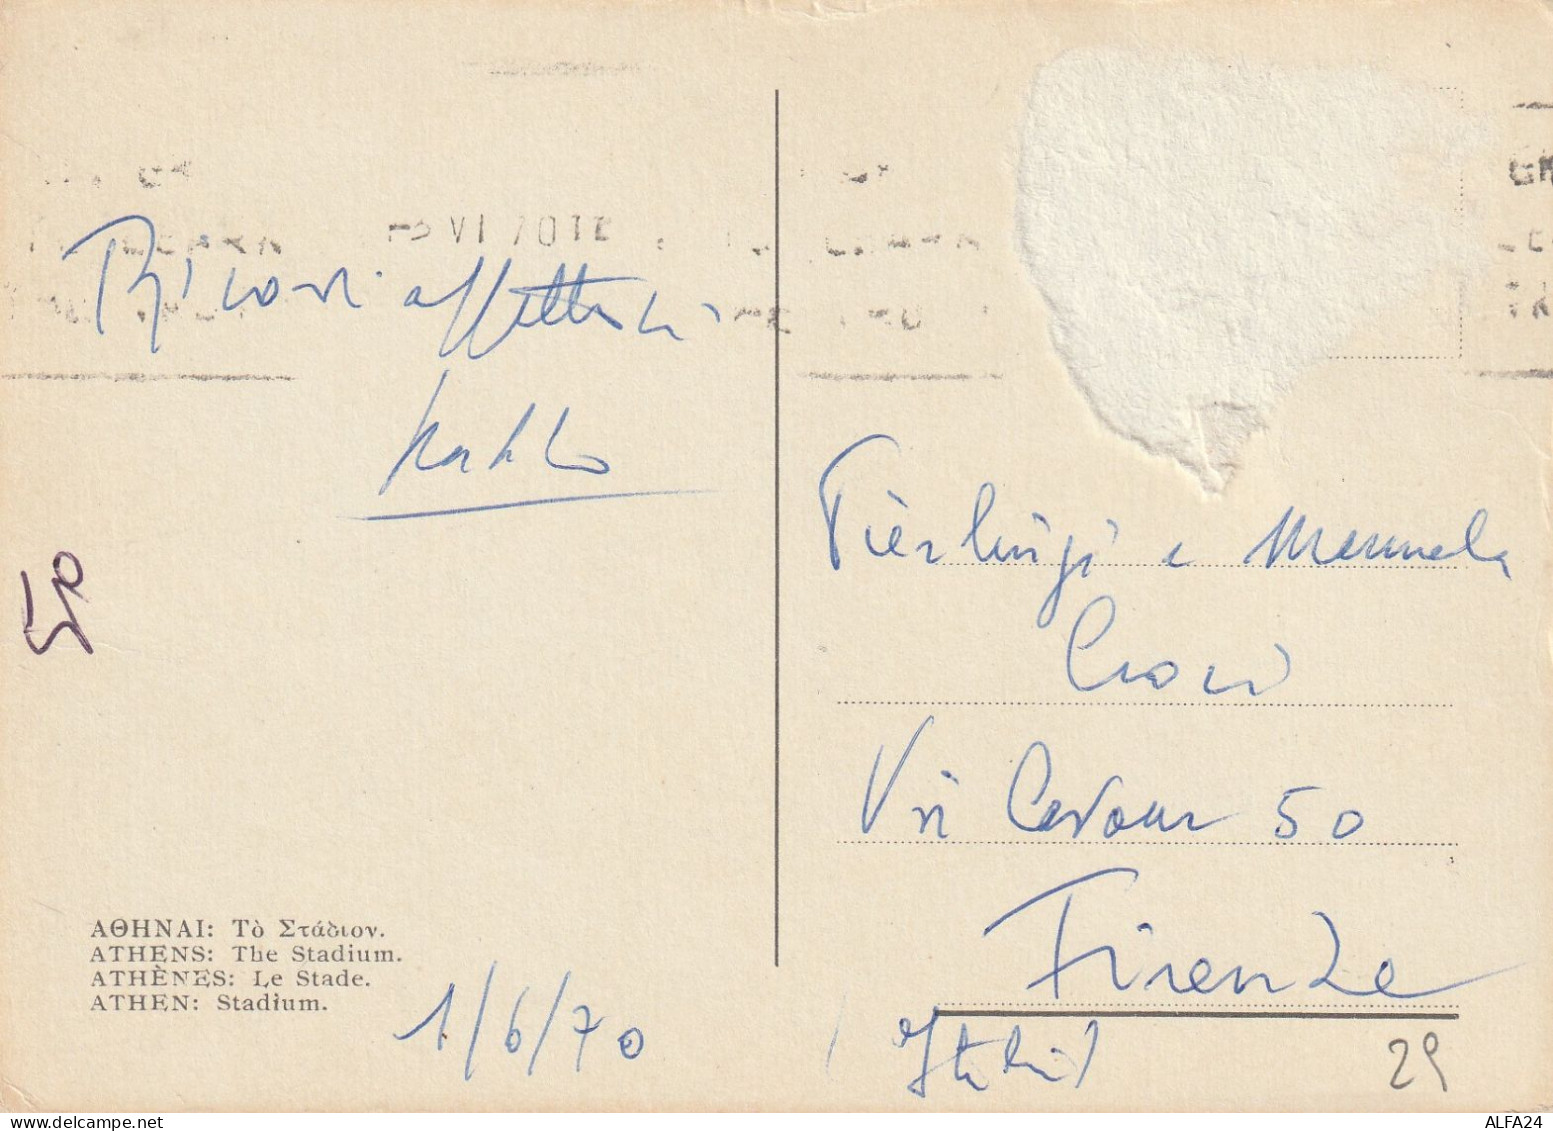 -3 VI 70 18
Ricordi affettuosi
Pierluigi e Manuela
Croci
Via Cavour 50
Firenze
(Italia)
ΑΘΗΝΑΙ: Τὸ Στάδιον.
ATHENS: The Stadium.
ATHÈNES: Le Stade.
ATHEN: Stadium.
1/6/70
29
ALFA24